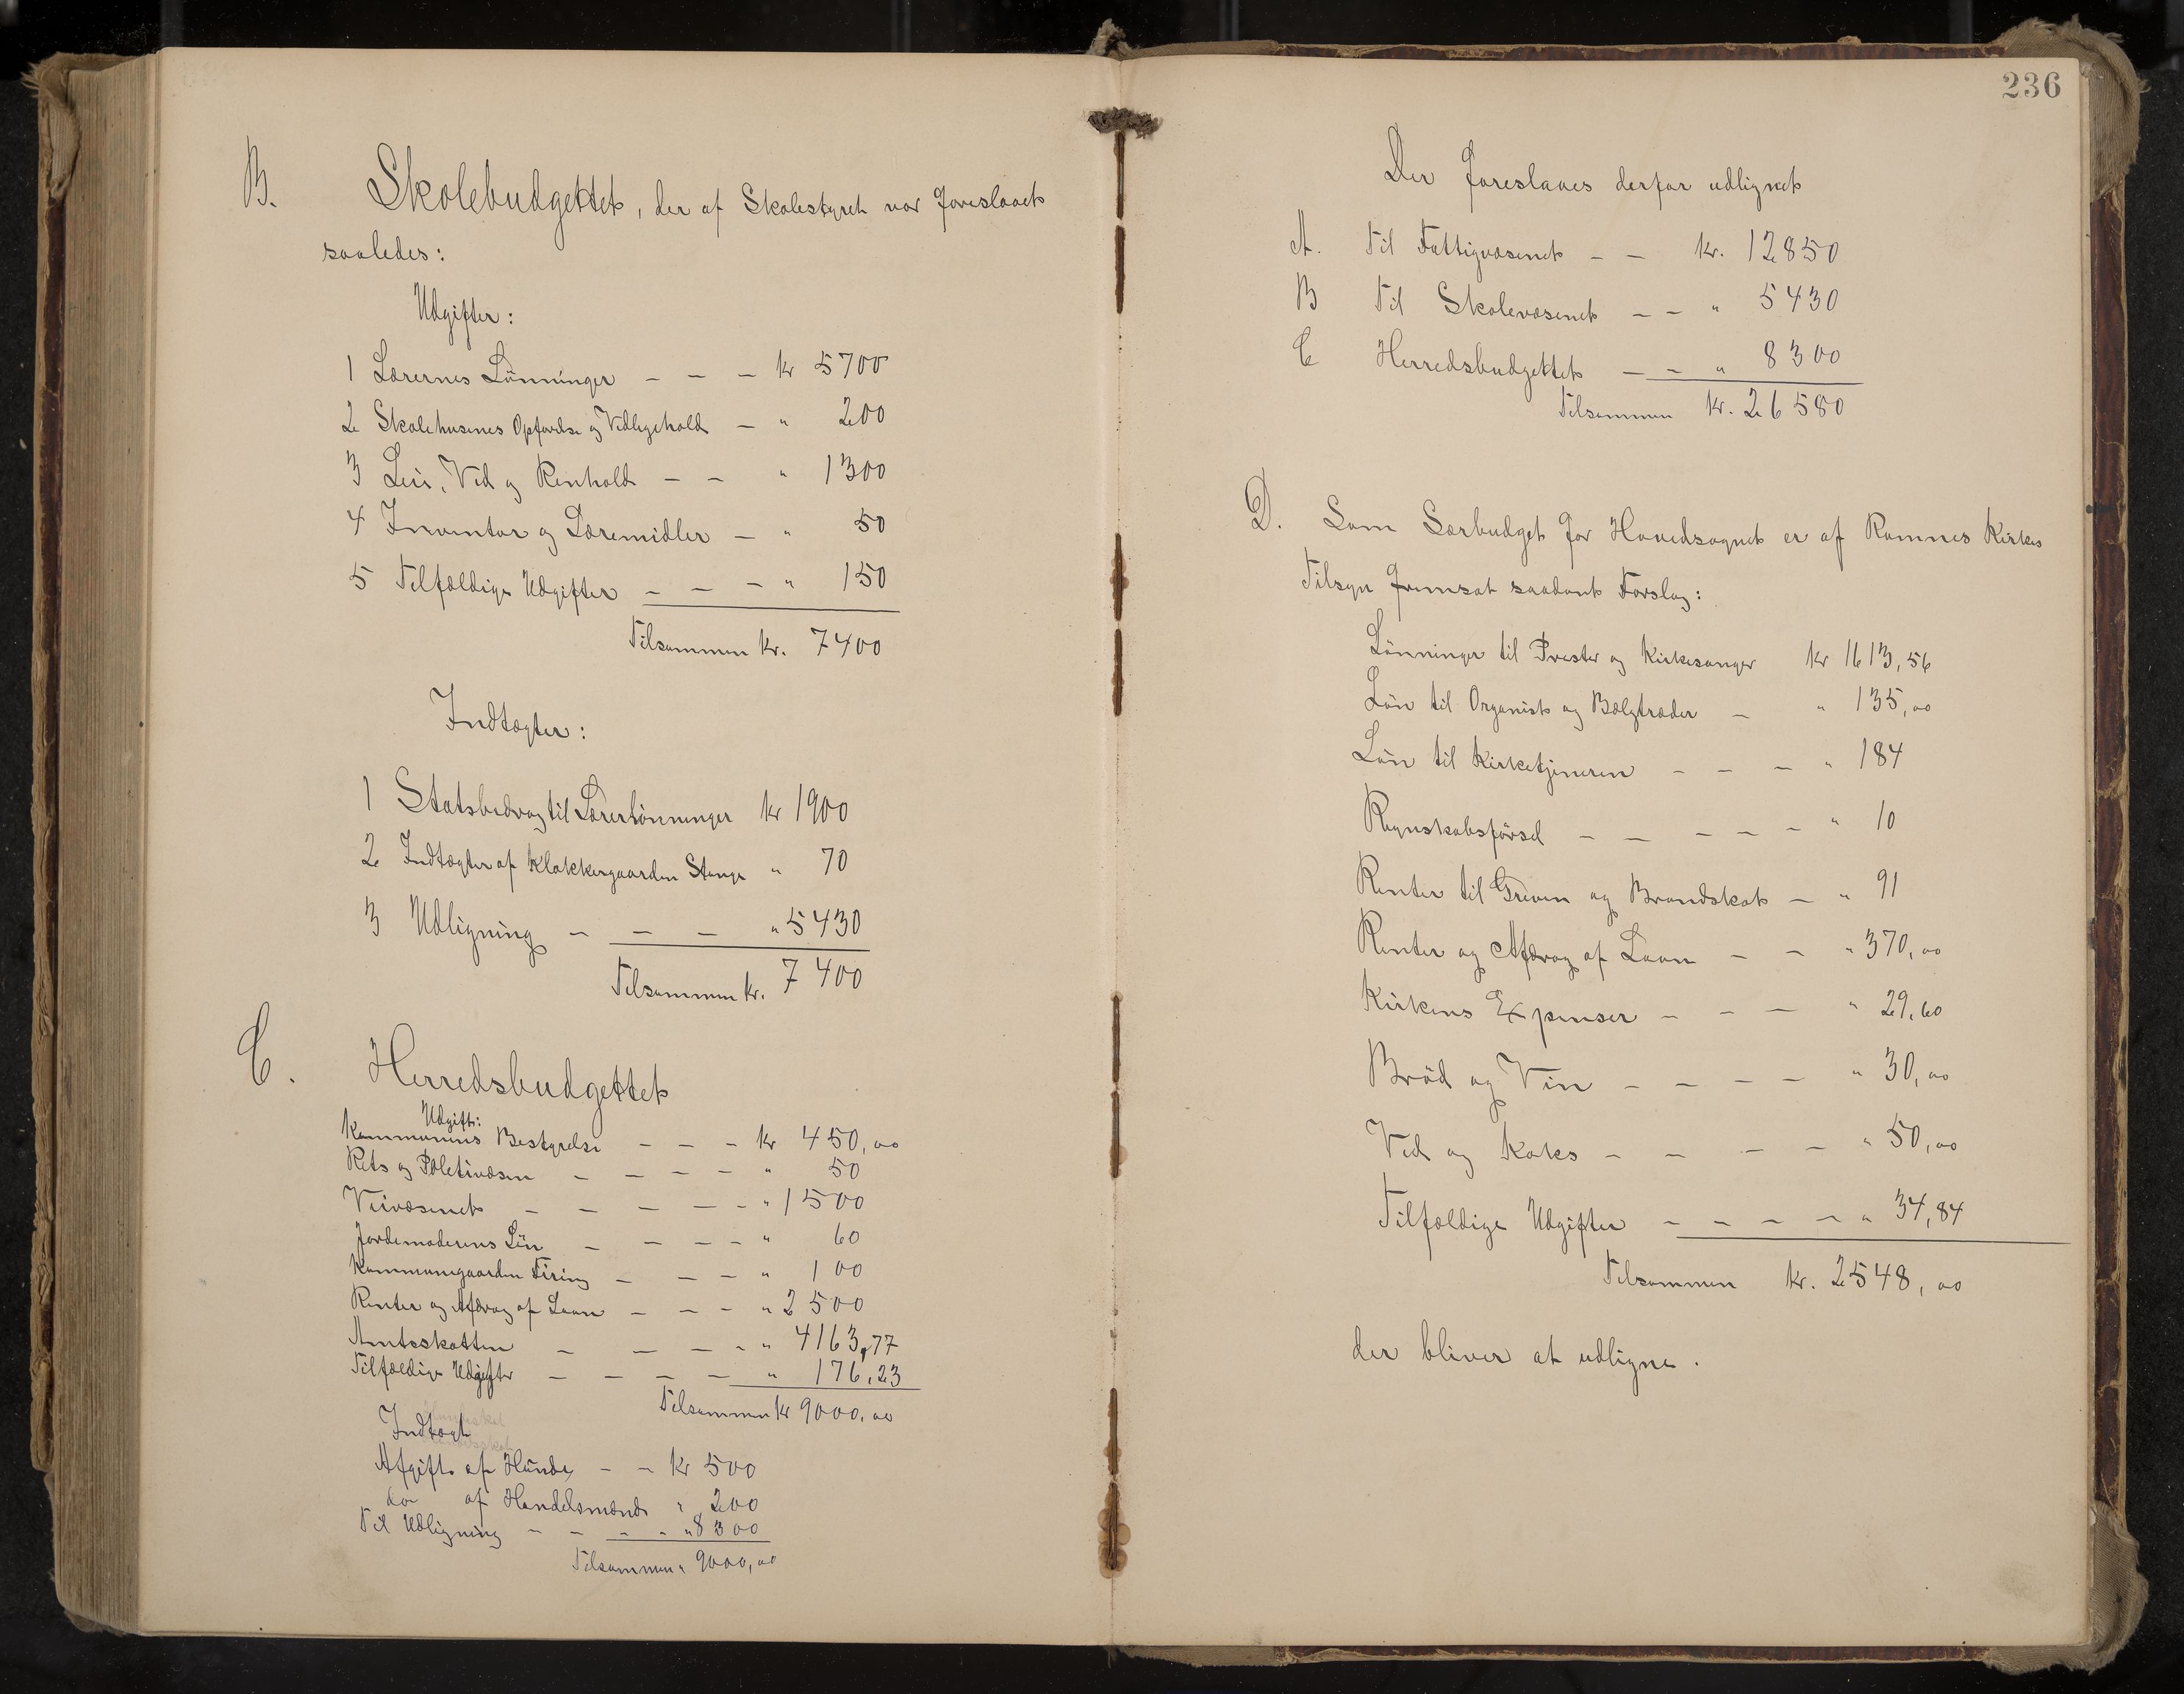 B. Skolebudgettet, der af Skolestyret var foreslaaet
saaledes:
Udgifter:
1 Lærernes Lönninger – – – kr 5700
2 Skolehusenes Opförelse og Vedligehold – " 200
3 Leie, Ved og Renhold – – " 1300
4 Inventar og Læremidler – " 50
5 Tilfældige Udgifter – – – " 150
Tilsammen kr. 7400
Indtægter:
1 Statsbidrag til Lærerlönninger kr 1900
2 Indtægter af Klokkergaarden Stange " 70
3 Udligning – – – " 5430
Tilsammen kr. 7400
C. Herredsbudgettet
Udgift:
Kommunens Bestyrelse – – – kr 450,00
Rets og Politivæsen – – – – " 50
Veivæsenet – – – – – " 1500
Jordemoderens Lön – – – – " 60
Kommunegaarden Firing – – – " 100
Renter og Afdrag af Laan – – – " 2500
Amtsskatten – – – – " 4163,77
Tilfældige Udgifter – – – – " 176,23
Tilsammen kr 9000,00
Indtægt
Afgift af Hunde – – kr 500
do af Handelsmænd " 200
Til Udligning – – – – " 8300
Tilsammen " 9000,00
236
Der foreslaaes derfor udlignet
A. Til Fattigvæsenet – – kr. 12850
B Til Skolevæsenet – – " 5430
C Herredsbudgettet – – " 8300
Tilsammen kr. 26580
D. Som Særbudget for Hovedsognet er af Ramnes Kirkes
Tilsyn fremsat saadant Forslag:
Lönninger til Prester og Kirkesanger kr 1613,56
Lön til Organist og Bælgtræder – " 135,00
Lön til Kirketjeneren – – – " 184
Regnskabsförsel – – – – – " 10
Renter til Greven og Brandskat – " 91
Renter og Afdrag af Laan – – " 370,00
Kirkens Expenser – – – " 29,60
Bröd og Vin – – – – " 30,00
Ved og Koks – – – – " 50,00
Tilfældige Udgifter – – – – " 34,84
Tilsammen kr. 2548,00
der bliver at udligne.